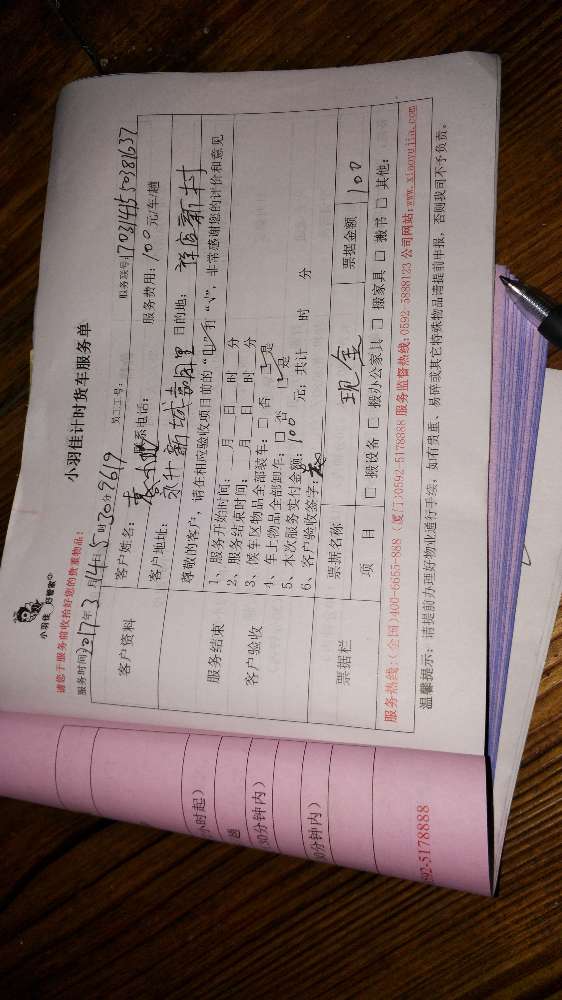 小羽佳 好管家
小羽佳计时货车服务单
请您于服务前收拾好您的贵重物品!
服务时间2017年3月14日5时30分9619 员工工号: 服务联号170314155038637
客户资料
客户姓名: 联系电话: 服务费用:100元/车/趟
客户地址: 目的地:
服务结束
客户验收
尊敬的客户,请在相应验收项目前的“□”打“√”,非常感谢您的评价和意见
1、服务开始时间: 月 日 时 分
2、服务结束时间: 月 日 时 分
3、候车区物品全部装车:□否 是
4、车上物品全部卸作:□否 是
5、本次服务实付金额:100元;共计 时 分
6、客户验收签字:
票据栏
票据名称 现金 票据金额 100
项 目 □搬设备 □搬办公家具 □搬家具 □搬书 □其他:
服务热线:(全国)400-6655-888 (厦门)0592-5178888 服务监督热线:0592-5888123 公司网站:www.xiaoyujia.com
温馨提示:请提前办理好物业通行手续,如有贵重、易碎或其它特殊物品请提前申报,否则我司不予负责。
小时起)
趟
30分钟内)
30分钟内)
592-5178888